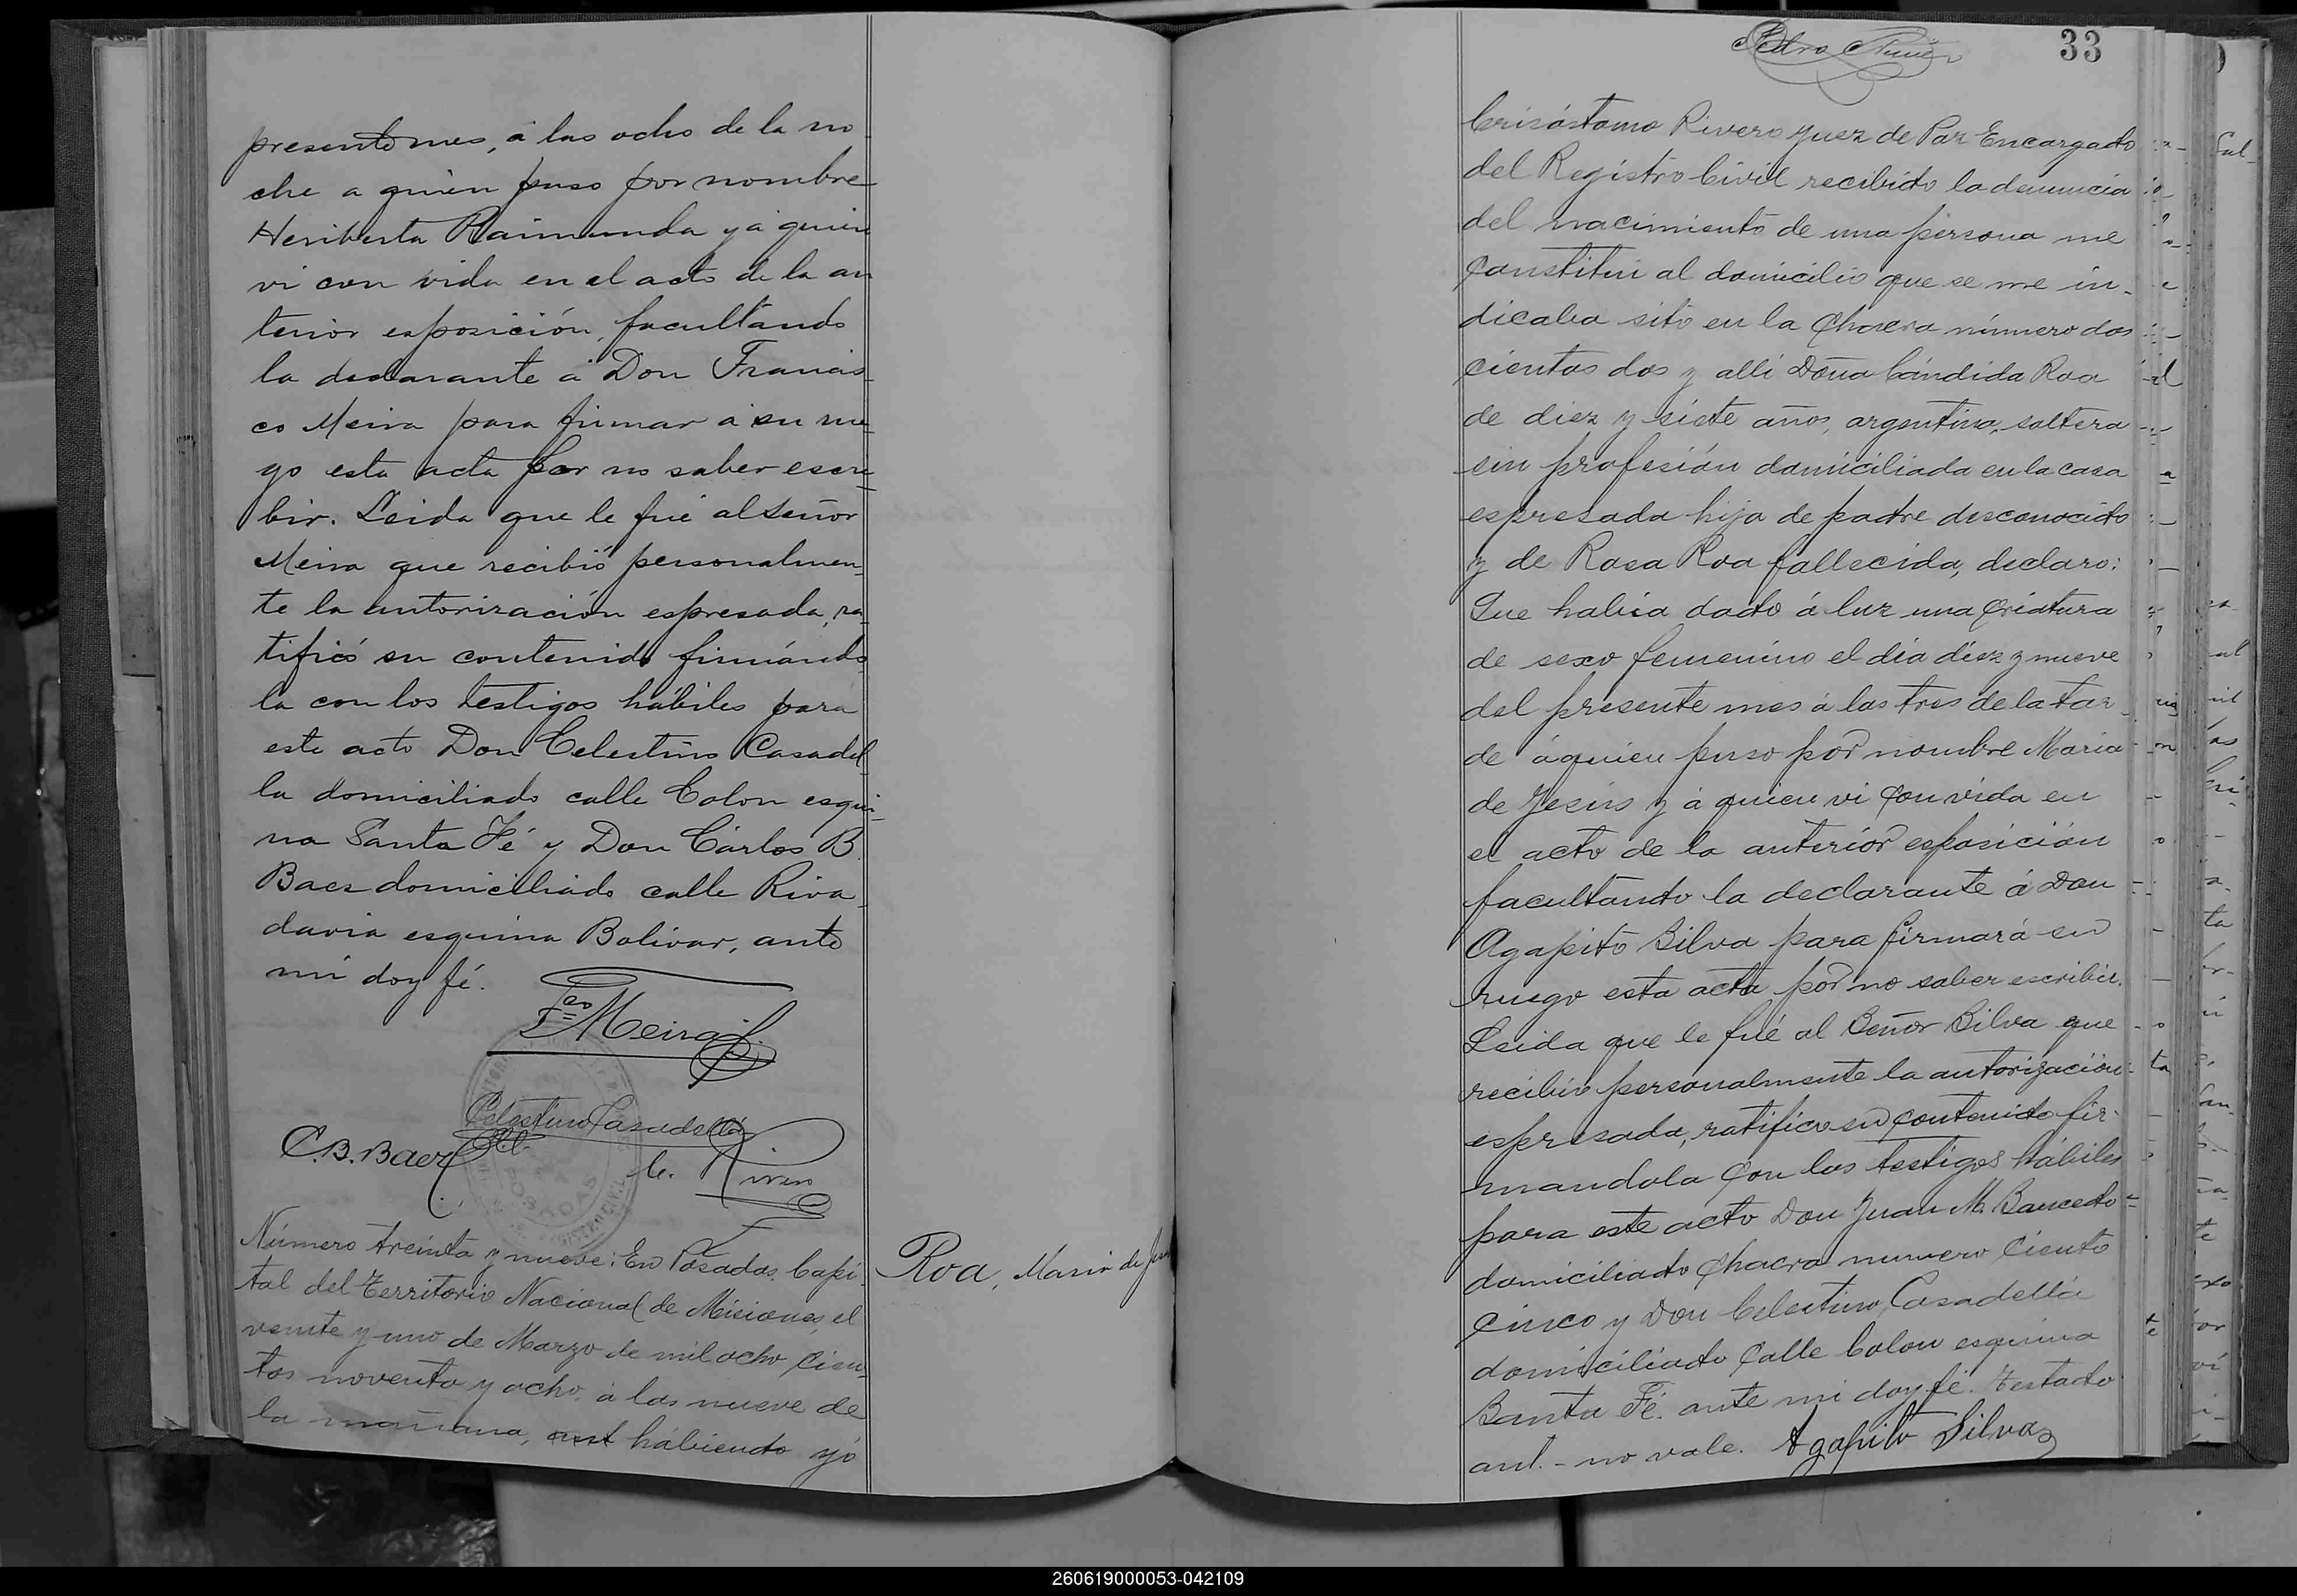 presente mes, á las ocho de la no
che a quien puso por nombre
Heriberta Raimunda y á quien
vi con vida en el acto de la an
terior esposición, facultando
la declarante á Don Francis
co Meira para firmar á su rue
go esta acta por no saber escri
bir. Leida que le fué al Señor
Meira que recibió personalmen
te la autorización espresada, ra
tificó su contenido firmándo
la con los testigos hábiles para
este acto Don Celestino Casadel
la domiciliado calle Colon esqui
na Santa Fé y Don Cárlos B.
Baez domiciliado calle Riva
davia esquina Bolivar, ante
mi doy fé.
Fco Meira
Celestino Casadellá
C.B. Baez
C. Rivero
POSADAS
Número treinta y nueve: En Posadas, Capi
tal del Territorio Nacional de Misiones, el
veinte y uno de Marzo de mil ocho cien
tos noventa y ocho, á las nueve de
la mañana, ant habiendo yó
Roa, Maria de Jesus
33
Crisóstomo Rivero Juez de Paz Encargado
del Registro Civil recibido la denuncia
del nacimiento de una persona me
constitui al domicilio que se me in-
dicaba sito en la Chacra número dos
cientos dos y alli Doña Cándida Roa
de diez y siete años, argentina, soltera
sin profesión domiciliada en la casa
espresada hija de padre desconocido
y de Rosa Roa fallecida, declaro:
Que habia dado á luz una criatura
de sexo femenino el dia diez y nueve
del presente mes á las tres de la tar
de á quien puso por nombre Maria
de Jesús y á quien vi con vida en
el acto de la anterior esposición
facultando la declarante á Don
Agapito Silva para firmar á su
ruego esta acta por no saber escribir.
Leida que le fué al Señor Silva que
recibió personalmente la autorización
espresada, ratifico su contenido fir-
mandola con los testigos hábiles
para este acto Don Juan M. Saucedo
domiciliado Chacra numero ciento
cinco y Don Celestino Casadellá
domiciliado Calle Colon esquina
Santa Fé. ante mi doy fé. Testado
ant. - no vale. Agapito Silva
260619000053-042109